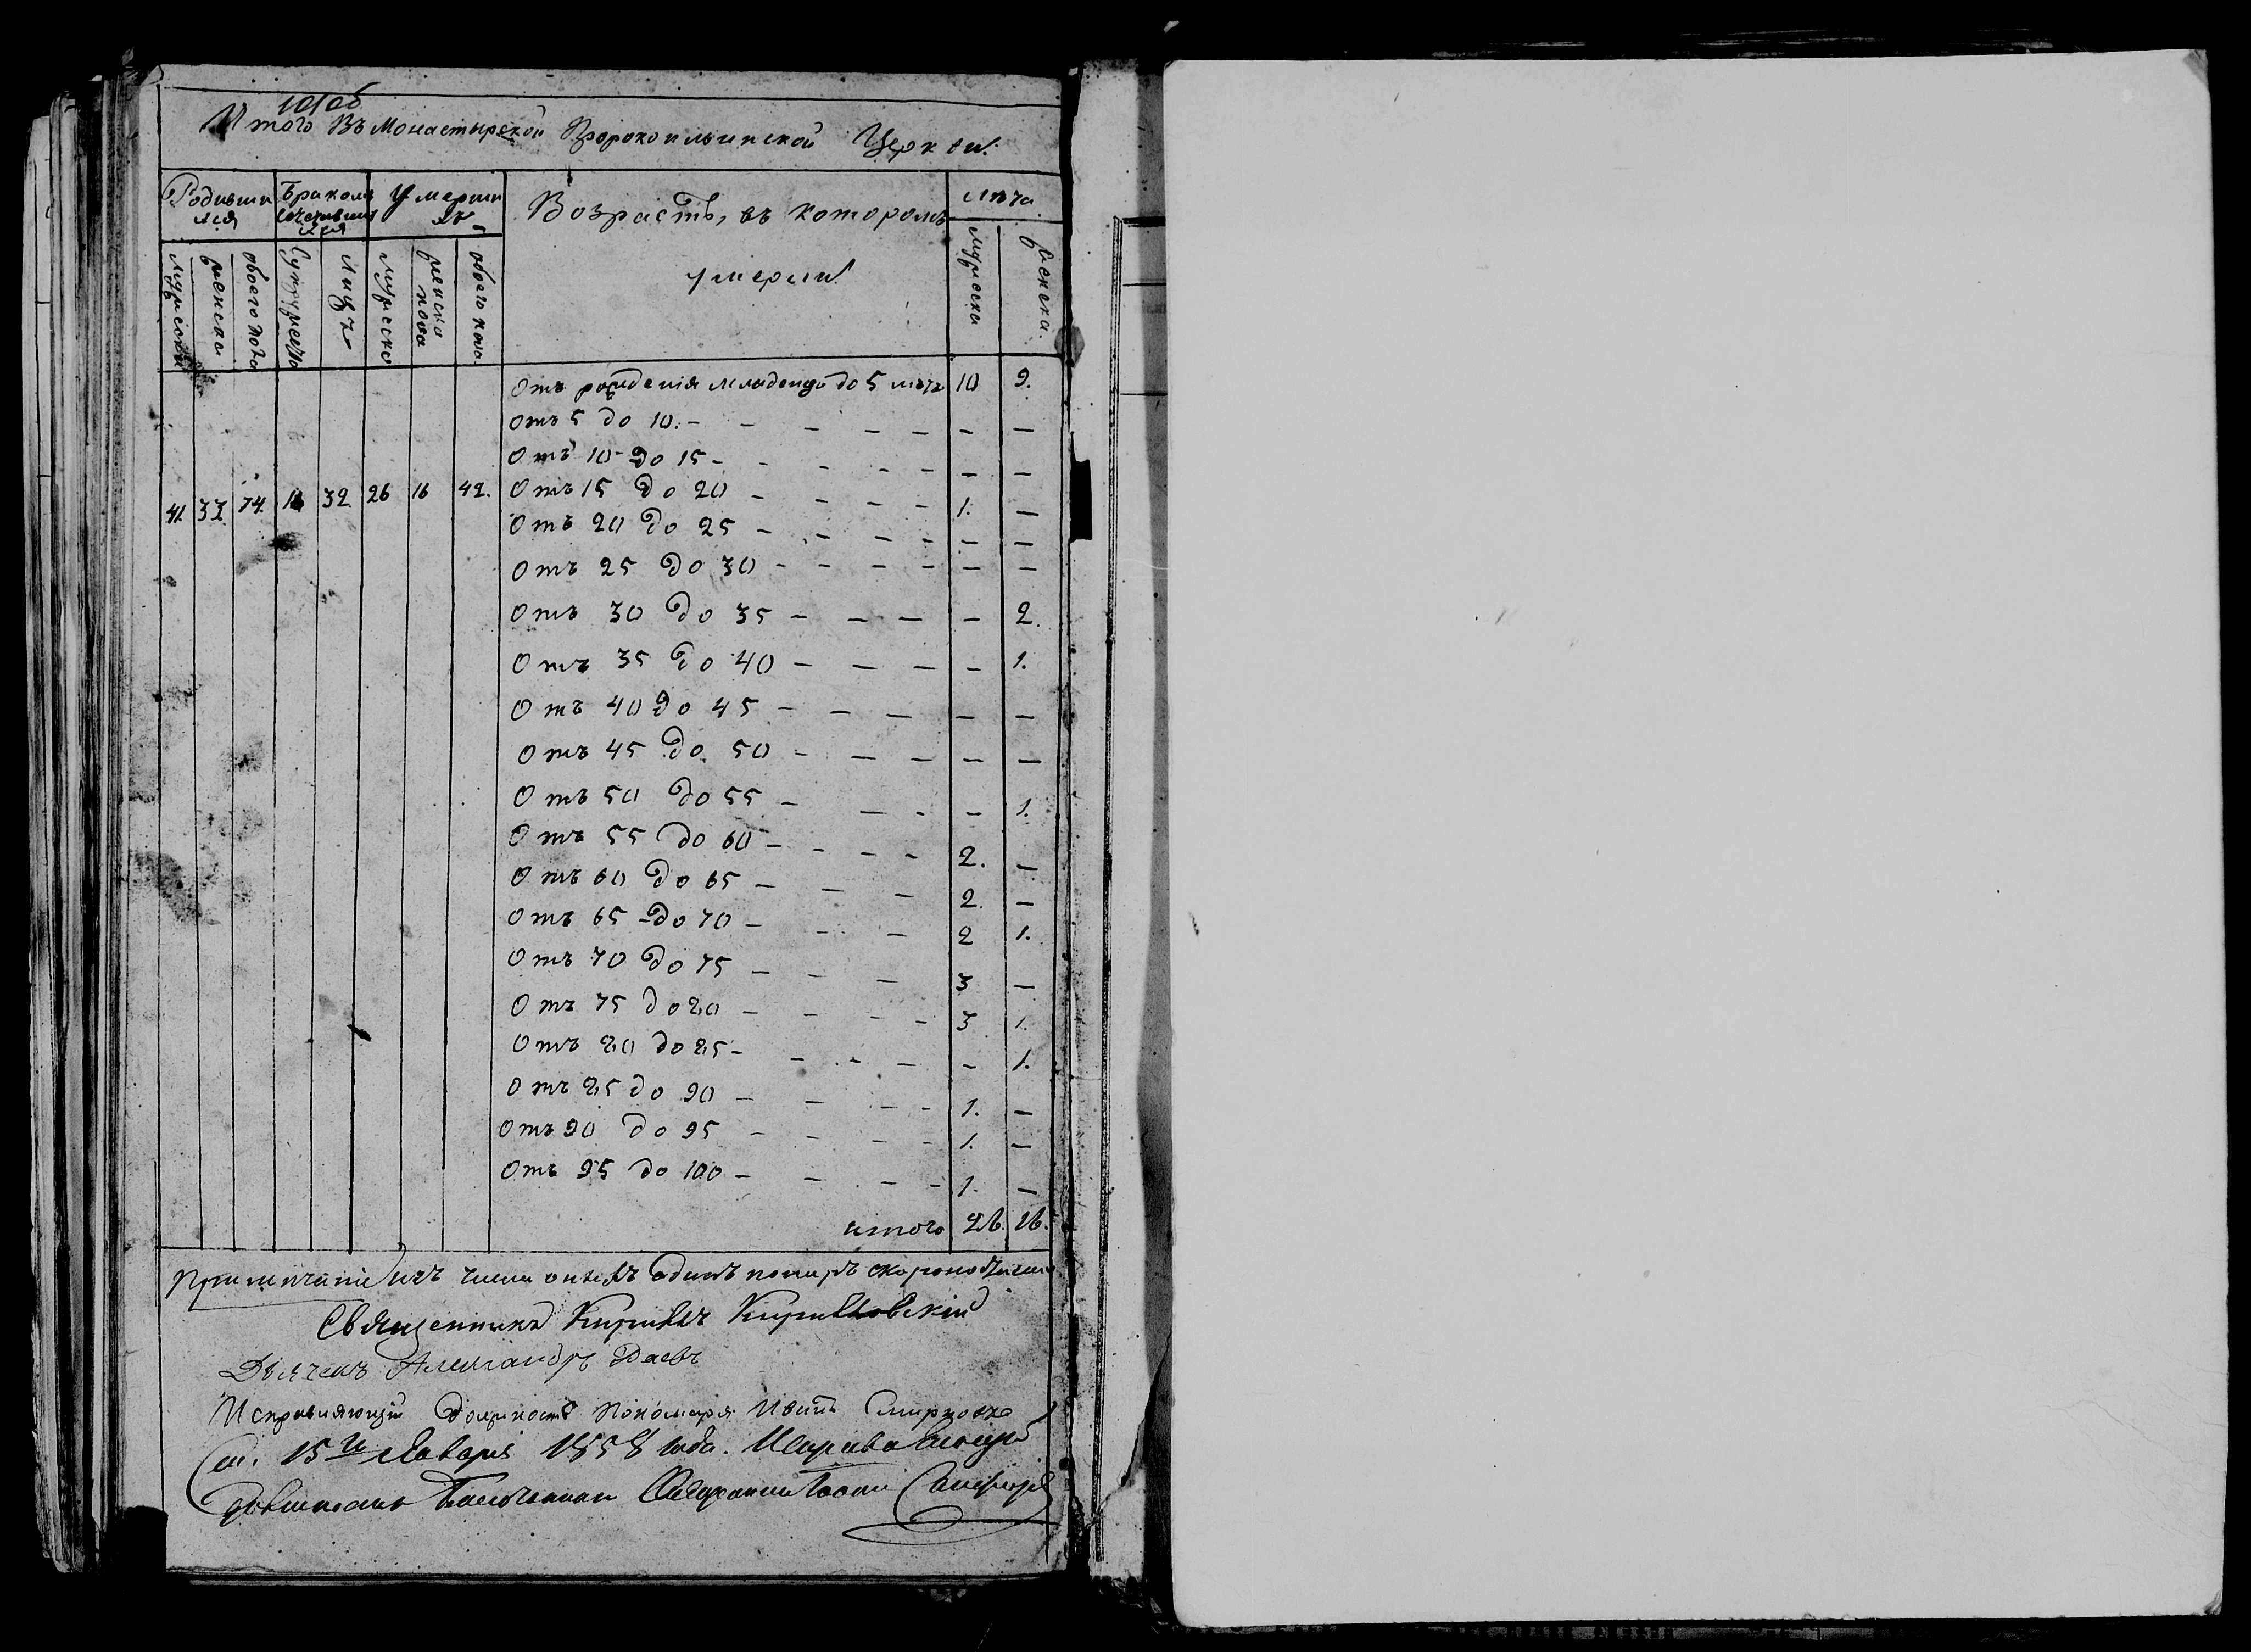 101об
Итого Въ Монастырской Пророкоильинской Церкви.
Родивши Бракомъ Умерши Возрастъ, въ которомъ умерли. лѣта
яся сочетавши хъ
хся
мужеска женска обоего пола Супружествъ лицъ мужеска женска пола обоего пола. мужеска женска.
Отъ рожденія младенца до 5 лѣтъ 10 9.
Отъ 5 до 10. - - - - - - - —
Отъ 10 до 15 - - - - - - —
41. 33. 74. 16 32 26 16 42. Отъ 15 до 20 - - - - - 1. —
Отъ 20 до 25 - - - - - - —
Отъ 25 до 30 - - - - - —
Отъ 30 до 35 - - - - 2.
Отъ 35 до 40 - - - - - 1.
Отъ 40 до 45 - - - - —
Отъ 45 до 50 - - - - —
Отъ 50 до 55 - - - - 1.
Отъ 55 до 60 - - - - 2. —
Отъ 60 до 65 - - - 2. —
Отъ 65 до 70 - - - 2 1.
Отъ 70 до 75 - - - 3 —
Отъ 75 до 80 - - - - 3 1.
Отъ 80 до 85 - - - - - 1.
Отъ 85 до 90 - - - - 1. —
Отъ 90 до 95 - - - - 1. —
Отъ 95 до 100 - - - - 1. —
итого 26. 16.
Примѣчаніе Изъ числа онихъ одинъ померъ скоропостижно
Священникъ Кириллъ Кирилловскій
Дьячекъ Александръ
Исправляющій должность Пономаря Иванъ Смирновъ
15го Января 1858 года. Исправляющій